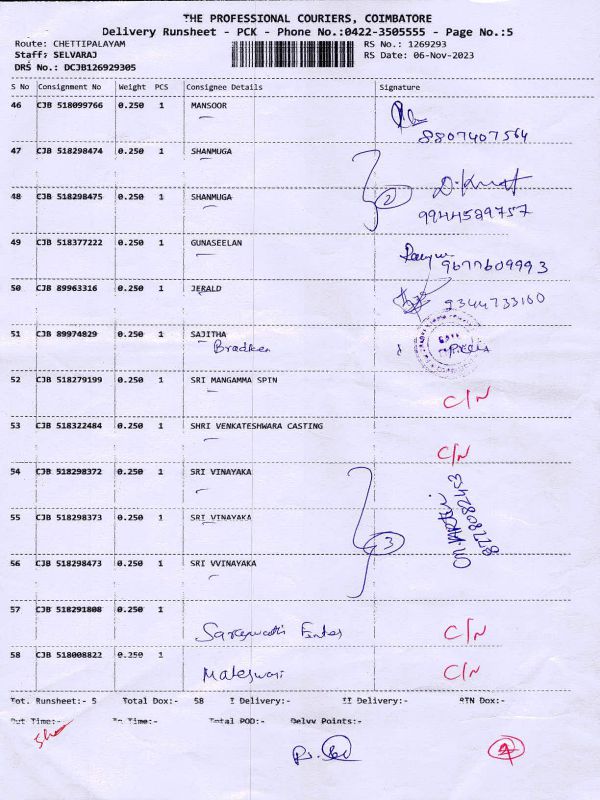 THE PROFESSIONAL COURIERS, COIMBATORE
Delivery Runsheet - PCK - Phone No.:0422-3505555 - Page No.:5
Route: CHETTIPALAYAM RS No.: 1269293
Staff: SELVARAJ RS Date: 06-Nov-2023
DRS No.: DCJB126929305
S No Consignment No Weight PCS Consignee Details Signature
46 CJB 518099766 0.250 1 MANSOOR
8807407564
47 CJB 518298474 0.250 1 SHANMUGA
48 CJB 518298475 0.250 1 SHANMUGA 2
9944529757
49 CJB 518377222 0.250 1 GUNASEELAN
9677609993
50 CJB 89963316 0.250 1 JERALD 9344733160
51 CJB 89974829 0.250 1 SAJITHA
52 CJB 518279199 0.250 1 SRI MANGAMMA SPIN
C/N
53 CJB 518322484 0.250 1 SHRI VENKATESHWARA CASTING
C/N
54 CJB 518298372 0.250 1 SRI VINAYAKA
55 CJB 518298373 0.250 1 SRI VINAYAKA
3
56 CJB 518298473 0.250 1 SRI VVINAYAKA
57 CJB 518291808 0.250 1
C/N
58 CJB 518008822 0.250 1
Maleswari C/N
Tot. Runsheet:- 5 Total Dox:- 58 I Delivery:- II Delivery:- RTN Dox:-
Out Time:- In Time:- Total POD:- Delvy Points:-